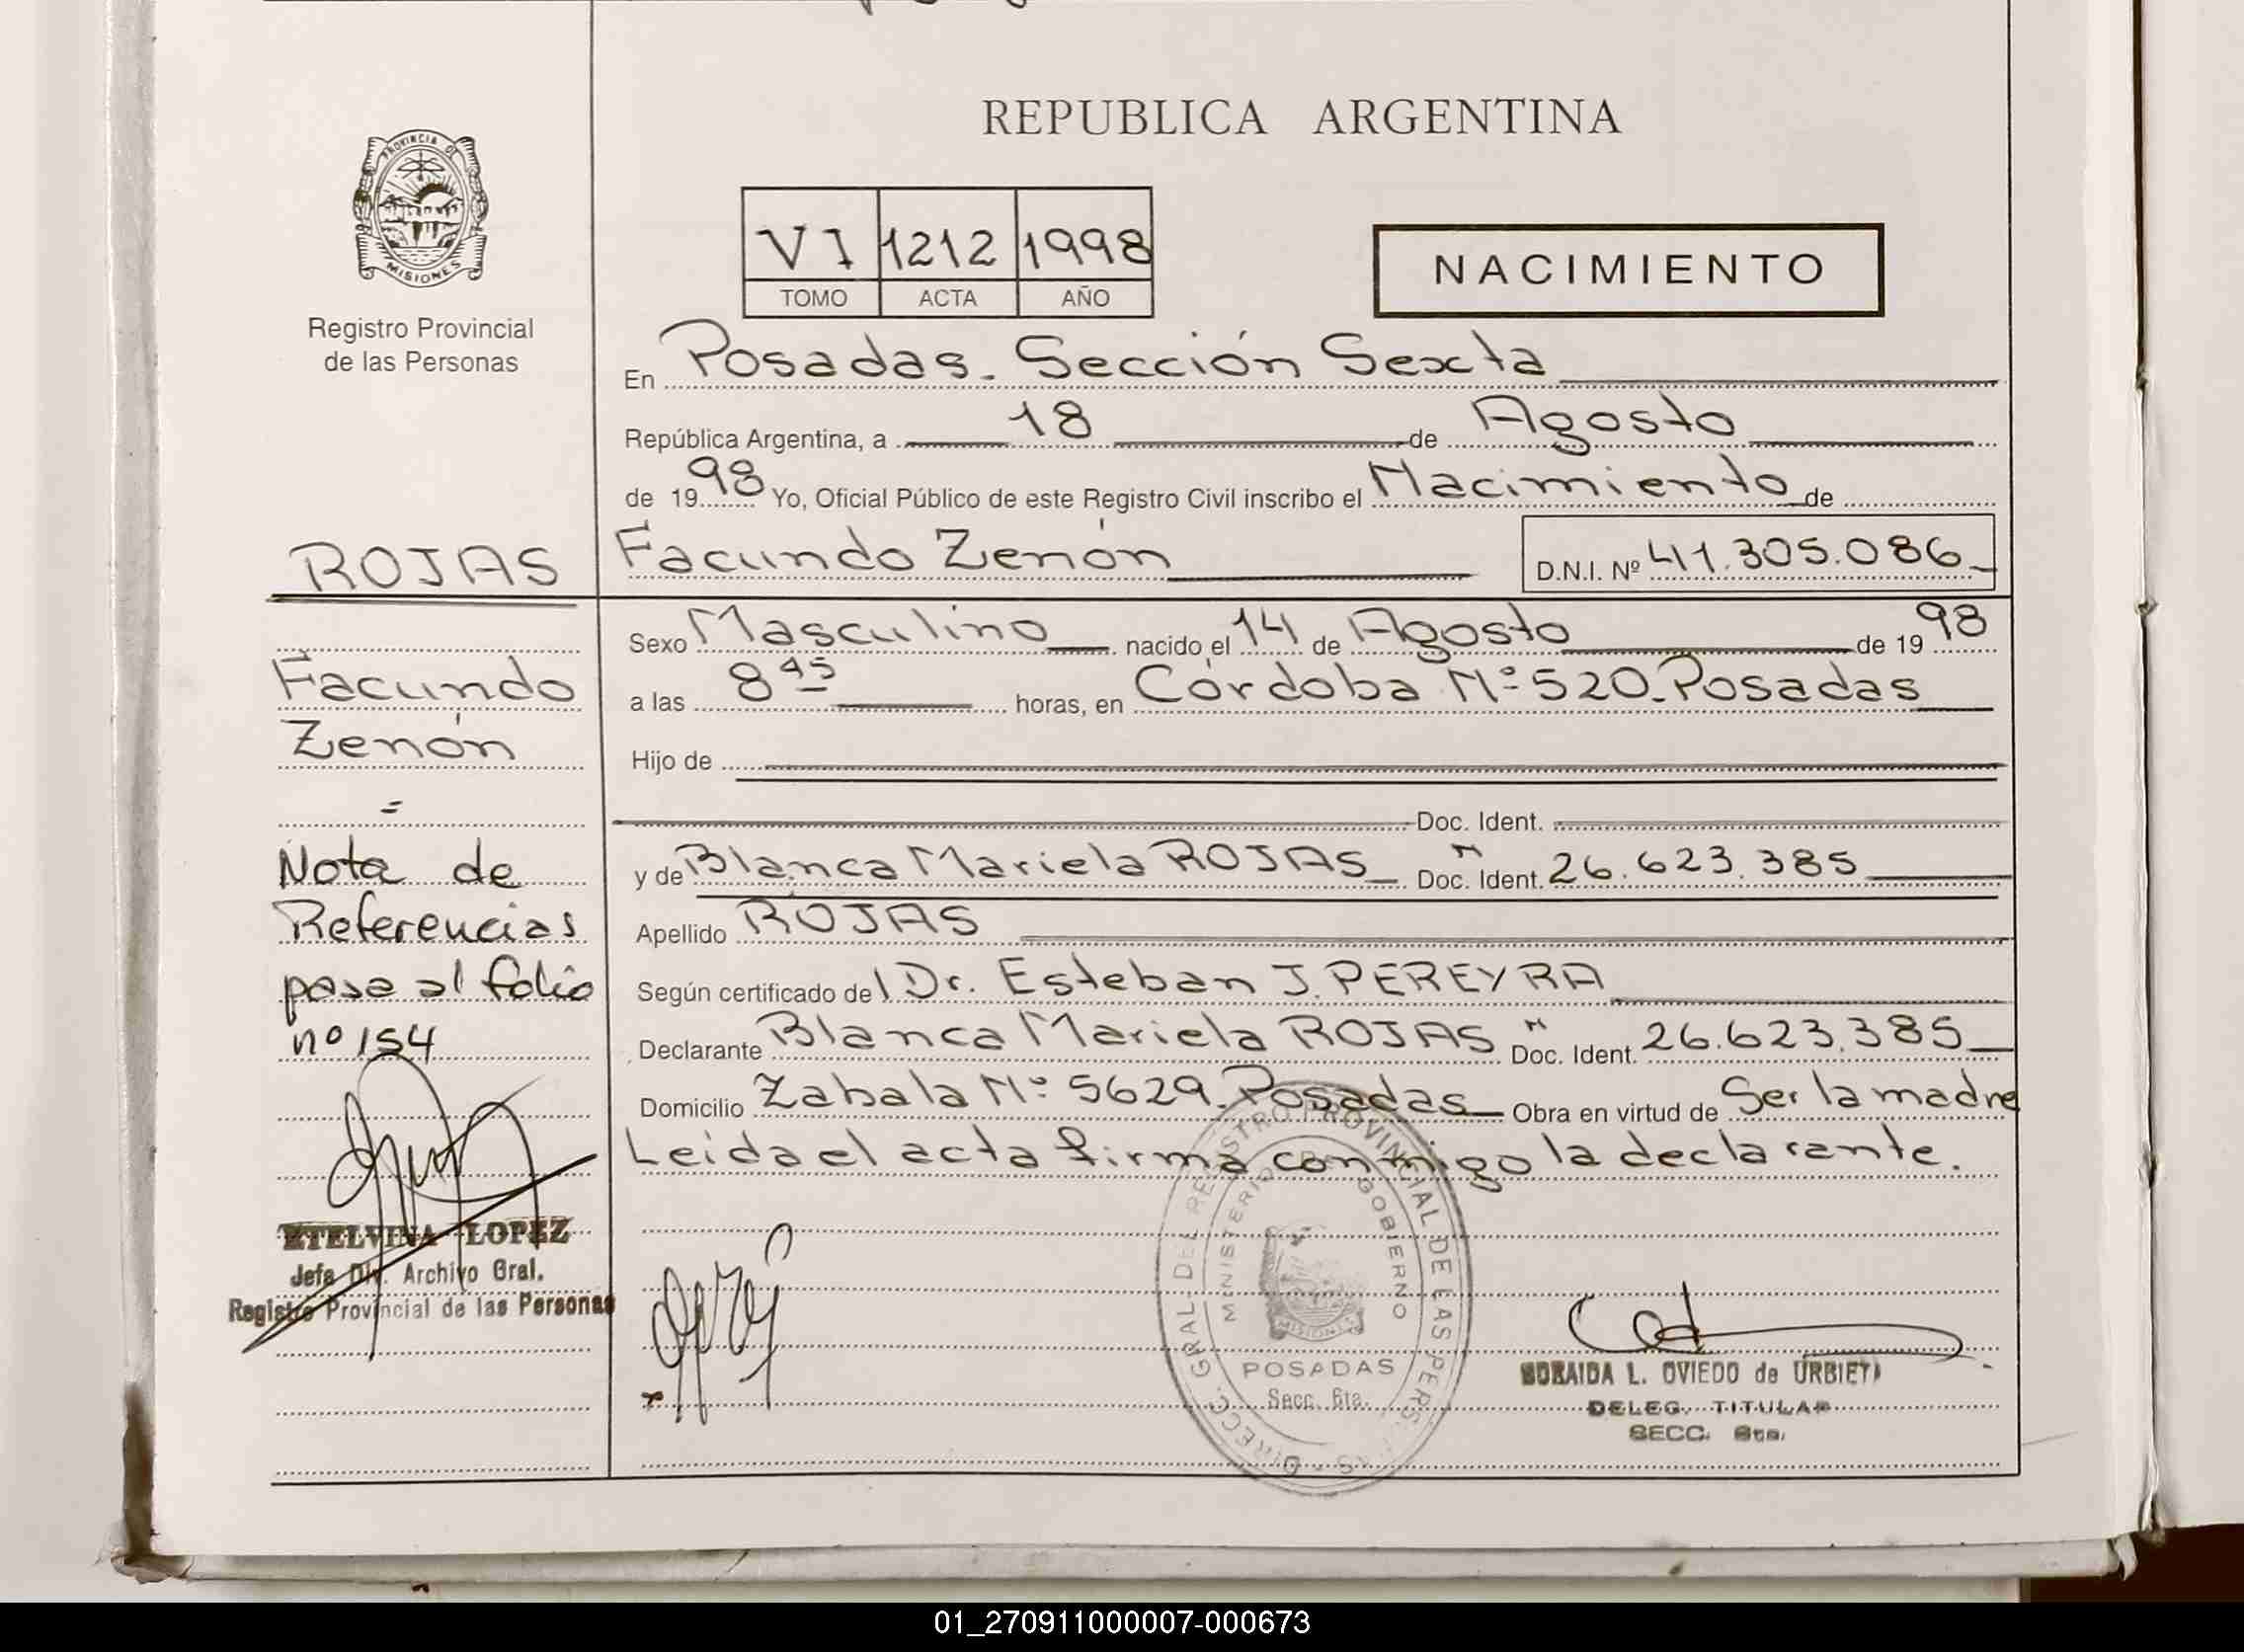 REPUBLICA ARGENTINA
PROVINCIA DE
MISIONES
Registro Provincial
de las Personas
VI 1212 1998
TOMO ACTA AÑO
NACIMIENTO
En Posadas. Sección Sexta
República Argentina, a 18 de Agosto
de 1998 Yo, Oficial Público de este Registro Civil inscribo el Nacimiento de
ROJAS
Facundo Zenón
D.N.I. Nº 41.305.086
Sexo Masculino nacido el 14 de Agosto de 1998
a las 8 45 horas, en Córdoba Nº 520. Posadas
Hijo de
Doc. Ident.
y de Blanca Mariela ROJAS Doc. Ident. 26.623.385
Apellido ROJAS
Según certificado del Dr. Esteban J. PEREYRA
Declarante Blanca Mariela ROJAS Doc. Ident. 26.623.385
Domicilio Zabala Nº 5629. Posadas Obra en virtud de Ser la madre
Leída el acta firma conmigo la declarante.
Facundo
Zenón
Nota de
Referencias
pasa al folio
nº 154
ETELVINA LOPEZ
Jefa Div. Archivo Gral.
Registro Provincial de las Personas
DIRECC. GRAL. DEL REGISTRO PROVINCIAL DE LAS PERS
MINISTERIO DE GOBIERNO
MISIONES
POSADAS
Secc. 6ta.
L. OVIEDO de URBIETA
DELEG. TITULAR
SECC. 6ta.
01_270911000007-000673